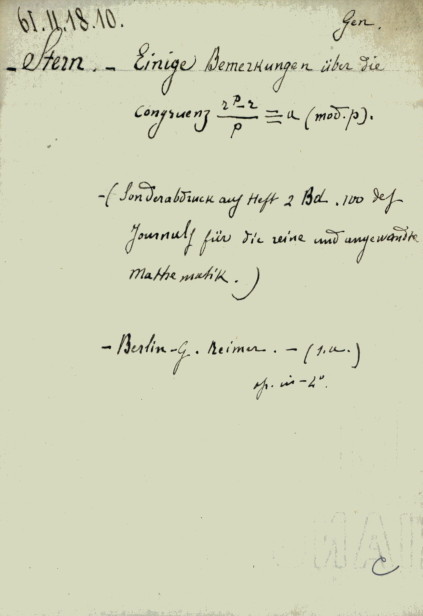 61.11.18.10.
Gen.
- Stern. - Einige Bemerkungen über die
Congruenz (r^p - r)/p ≡ a (mod. p).
- (Sonderabdruck auf Heft 2 Bd. 100 des
Journals für die reine und angewandte
Mathematik.)
- Berlin - G. Reimer. - (s.a.)
op. in - 4º.
C